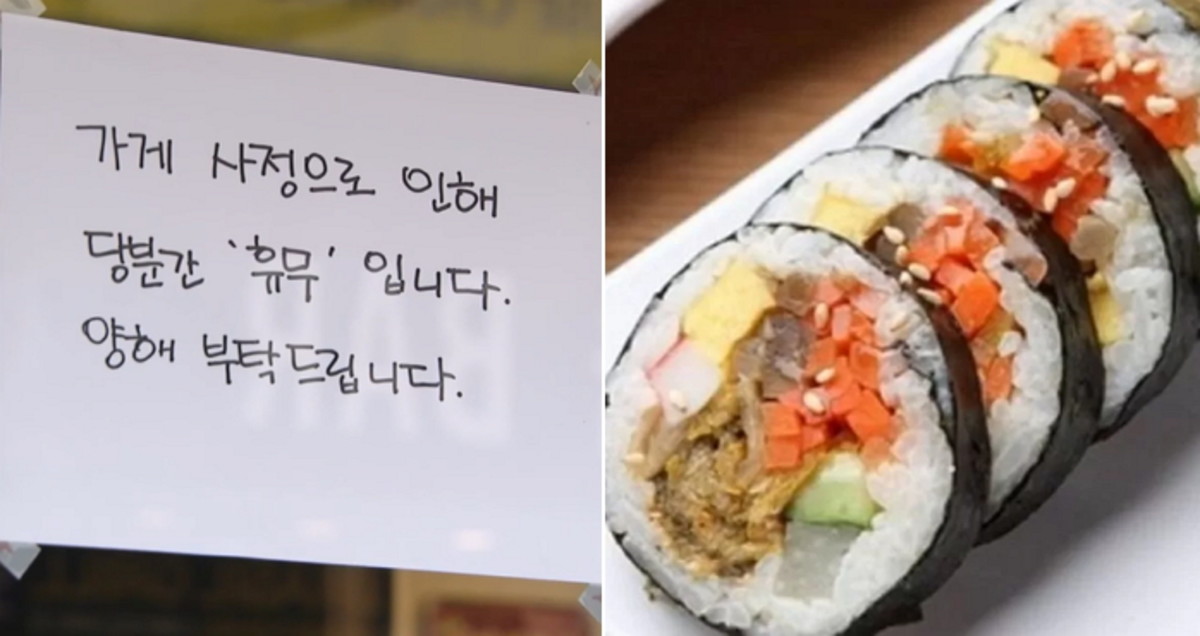 가게 사정으로 인해
당분간 '휴무' 입니다.
양해 부탁드립니다.